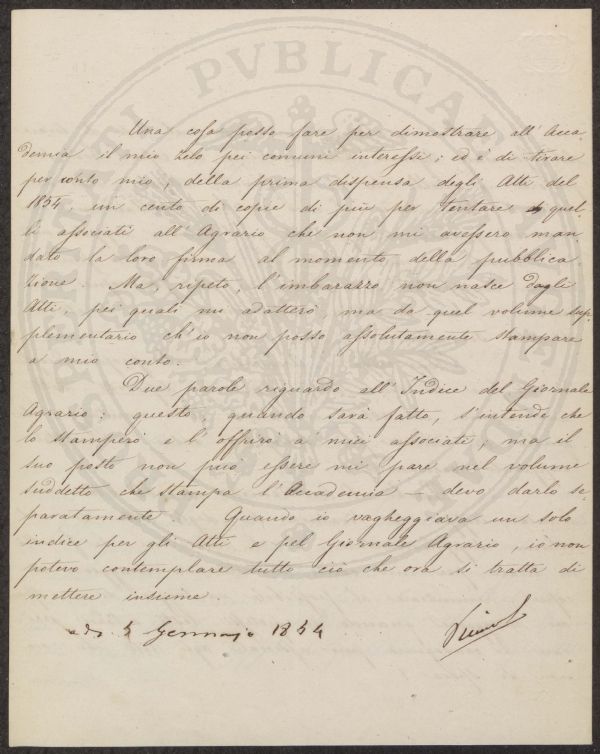 Una cosa posso fare per dimostrare all'Acca
demia il mio zelo pei comuni interessi; ed è di tirare
per conto mio, della prima dispensa degli Atti del
1854, un cento di copie di più per tentare quel
li associati all'Agrario che non mi avessero man
dato la loro firma al momento della pubblica
zione. Ma, ripeto, l'imbarazzo non nasce dagli
Atti, pei quali mi adatterò ma da quel volume sup
plementario ch'io non posso assolutamente stampare
a mio conto.
Due parole riguardo all'Indice del Giornale
Agrario: questo, quando sarà fatto, s'intende che
lo stamperò e l'offrirò a miei associati, ma il
suo posto non può essere mi pare nel volume
suddetto che stampa l'Accademia — devo darlo se
paratamente. Quando io vagheggiava un solo
indice per gli Atti e pel Giornale Agrario, io non
potevo contemplare tutto ciò che ora si tratta di
mettere insieme.
5 Gennajo 1854
PVBLICAE